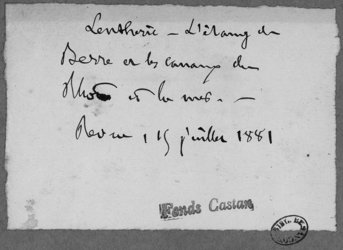 Lenthéric – L'étang de
Berre et les canaux du
Rhône et la mer. –
Revue, 15 juillet 1881
Fonds Castan